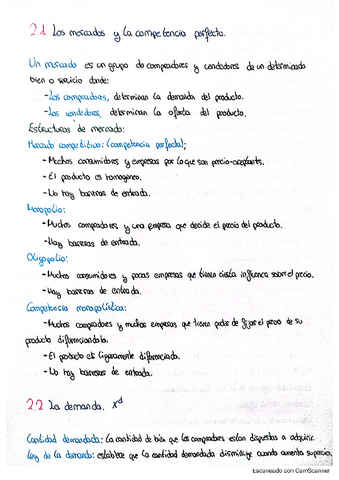 2.1 Los mercados y la competencia perfecta.
Un mercado es un grupo de compradores y vendedores de un determinado
bien o servicio donde:
-Los compradores, determinan la demanda del producto.
-Los vendedores, determinan la oferta del producto.
Estructuras de mercado:
Mercado competitivo: (competencia perfecta);
- Muchos consumidores y empresas por lo que son precio-aceptants.
- El producto es homogéneo.
- No hay barreras de entrada.
Monopolio:
- Muchos compradores y una empresa que decide el precio del producto.
- Hay barreras de entrada.
Oligopolio:
- Muchos consumidores y pocas empresas que tienen cierta influencia sobre el precio.
- Hay barreras de entrada.
Competencia monopolística:
- Muchos compradores y muchas empresas que tienen poder de fijar el precio de su
producto diferenciandolo.
- El producto es ligeramente diferenciado.
- No hay barreras de entrada.
2.2 La demanda. xd
Cantidad demandada: la cantidad de bien que los compradores estan dispuestos a adquirir.
Ley de la demanda: establece que la cantidad demandada disminuye cuando aumenta su precio.
Escaneado con CamScanner